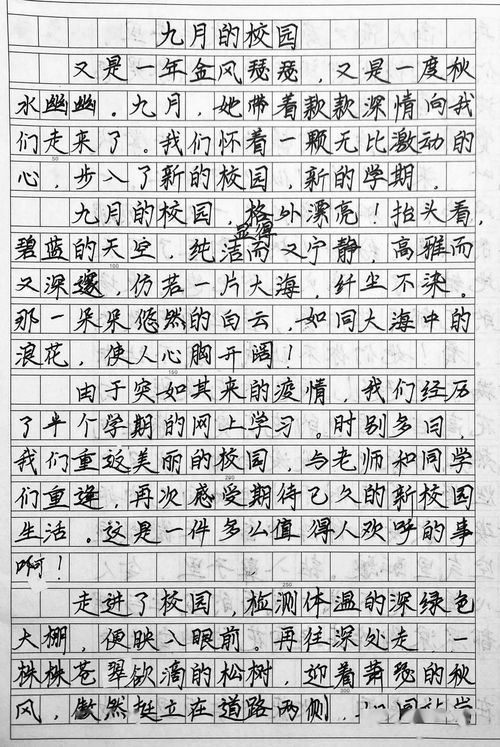 九月的校园
又是一年金风瑟瑟，又是一度秋
水幽幽。九月，她带着款款深情向我
们走来了。我们怀着一颗无比激动的
心，步入了新的校园，新的学期。
九月的校园，格外漂亮！抬头看，
显得
碧蓝的天空，纯洁而又宁静，高雅而
又深邃，仿若一片大海，纤尘不染。
那一朵朵悠然的白云，如同大海中的
浪花，使人心胸开阔！
由于突如其来的疫情，我们经历
了半个学期的网上学习。时别多日，
我们重返美丽的校园，与老师和同学
们重逢，再次感受期待已久的新校园
生活。这是一件多么值得人欢呼的事
啊！
走进了校园，检测体温的深绿色
大棚，便映入眼前。再往深处走，一
株株苍翠欲滴的松树，迎着萧瑟的秋
风，傲然挺立在道路两侧，
50
100
150
200
250
300